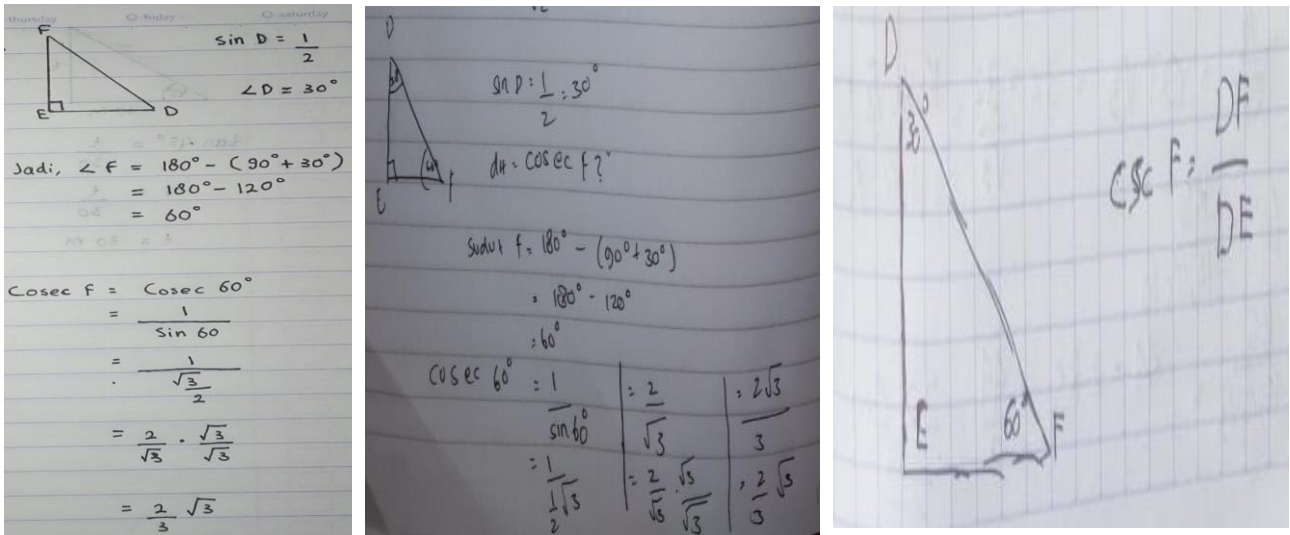 thursday friday saturday
F
E
D
sin D = 1/2
∠D = 30°
Jadi, ∠F = 180° - (90° + 30°)
= 180° - 120°
= 60°
Cosec F = Cosec 60°
= 1/sin 60
= 1/(√3/2)
= 2/√3 . √3/√3
= 2/3 √3
D
30°
E
60°
F
sin D = 1/2 = 30°
dit = cosec f?
sudut f = 180° - (90° + 30°)
= 180° - 120°
= 60°
cosec 60° = 1/sin 60°
= 1/(1/2 √3)
= 2/√3
= 2/√3 . √3/√3
= 2√3/3
= 2/3 √3
D
30°
E
60°
F
csc F = DF/DE